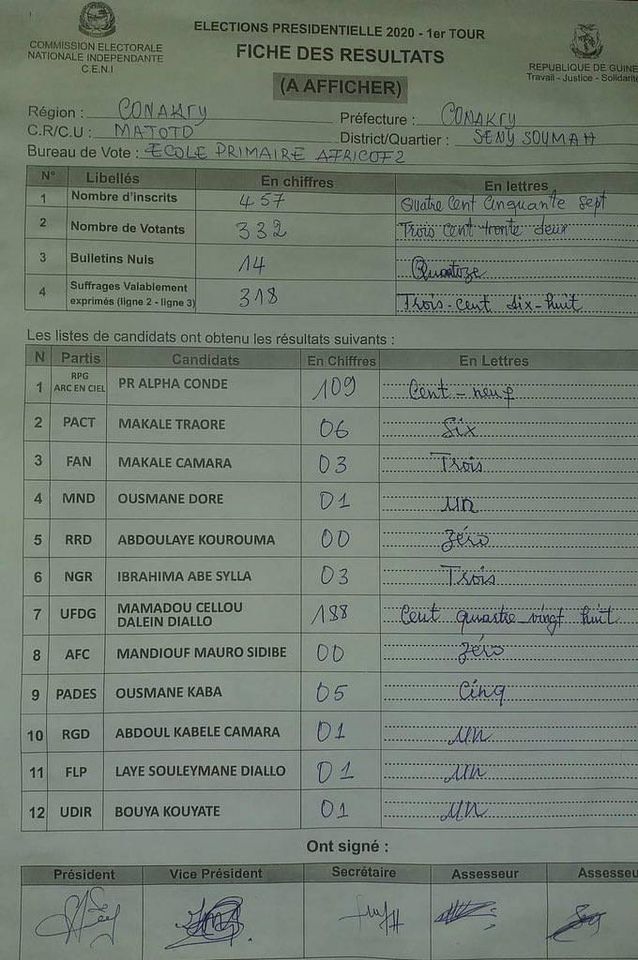 ELECTIONS PRESIDENTIELLE 2020 - 1er TOUR
FICHE DES RESULTATS
(A AFFICHER)
COMMISSION ELECTORALE
NATIONALE INDEPENDANTE
C.E.N.I
REPUBLIQUE DE GUINE
Travail - Justice - Solidarité
Région : CONAKRY Préfecture : CONAKRY
C.R/C.U : MATOTO District/Quartier : SENY SOUMAH
Bureau de Vote : ECOLE PRIMAIRE AFRICOF2
N° Libellés En chiffres En lettres
1 Nombre d'inscrits 457 Quatre Cent Cinquante Sept
2 Nombre de Votants 332 Trois Cent trente deux
3 Bulletins Nuls 14 Quatoze
4 Suffrages Valablement
exprimés (ligne 2 - ligne 3) 318 Trois-cent dix-huit
Les listes de candidats ont obtenu les résultats suivants :
N Partis Candidats En Chiffres En Lettres
1 RPG ARC EN CIEL PR ALPHA CONDE 109 Cent-neuf
2 PACT MAKALE TRAORE 06 Six
3 FAN MAKALE CAMARA 03 Trois
4 MND OUSMANE DORE 01 un
5 RRD ABDOULAYE KOUROUMA 00 Zéro
6 NGR IBRAHIMA ABE SYLLA 03 Trois
7 UFDG MAMADOU CELLOU
DALEIN DIALLO 188 Cent quastre-vingt huit
8 AFC MANDIOUF MAURO SIDIBE 00 zéro
9 PADES OUSMANE KABA 05 Cinq
10 RGD ABDOUL KABELE CAMARA 01 un
11 FLP LAYE SOULEYMANE DIALLO 01 un
12 UDIR BOUYA KOUYATE 01 un
Ont signé :
Président Vice Président Secrétaire Assesseur Assesseu